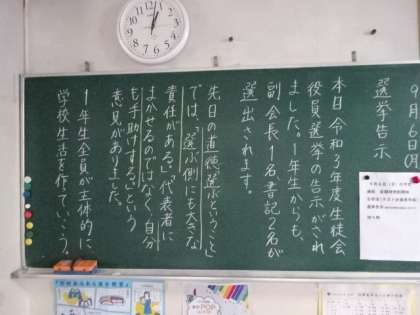 9月
日(月)
選挙告示
本日令和3年度生徒会
役員選挙の告示がされ
ました。1年生からも、
副会長1名、書記2名が
選出されます。
先日の道徳「選ぶということ」
では、「選ぶ側にも大きな
責任がある」「代表者に
まかせるのではなく自分
も手助けする」という
意見がありました。
1年生全員が主体的に、
学校生活を作っていこう。